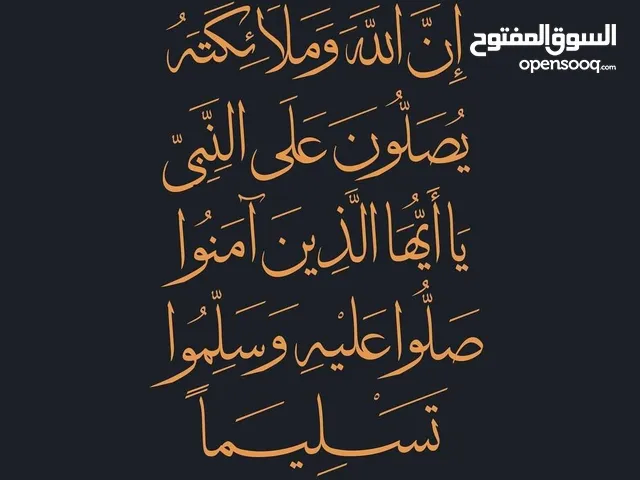 السوق المفتوح
opensooq.com
إِنَّ اللَّهَ وَمَلَائِكَتَهُ
يُصَلُّونَ عَلَى النَّبِيِّ
يَا أَيُّهَا الَّذِينَ آمَنُوا
صَلُّوا عَلَيْهِ وَسَلِّمُوا
تَسْلِيماً